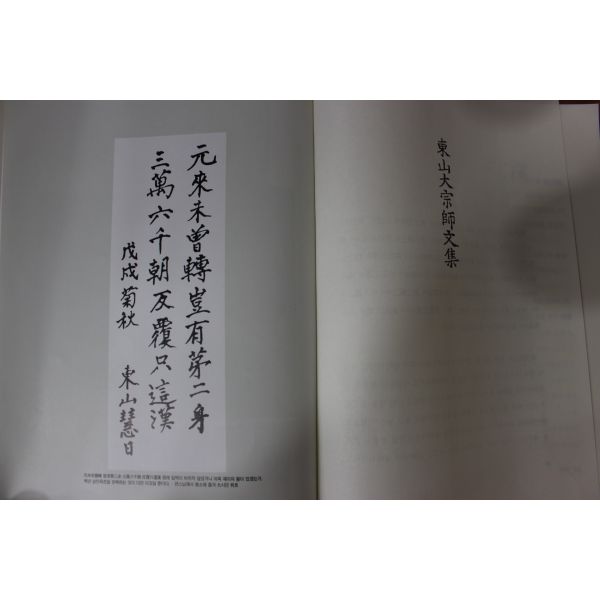 元來未曾轉豈有苐二身
三萬六千朝反覆只這漢
戊戌菊秋 東山慧日
東山大宗師文集